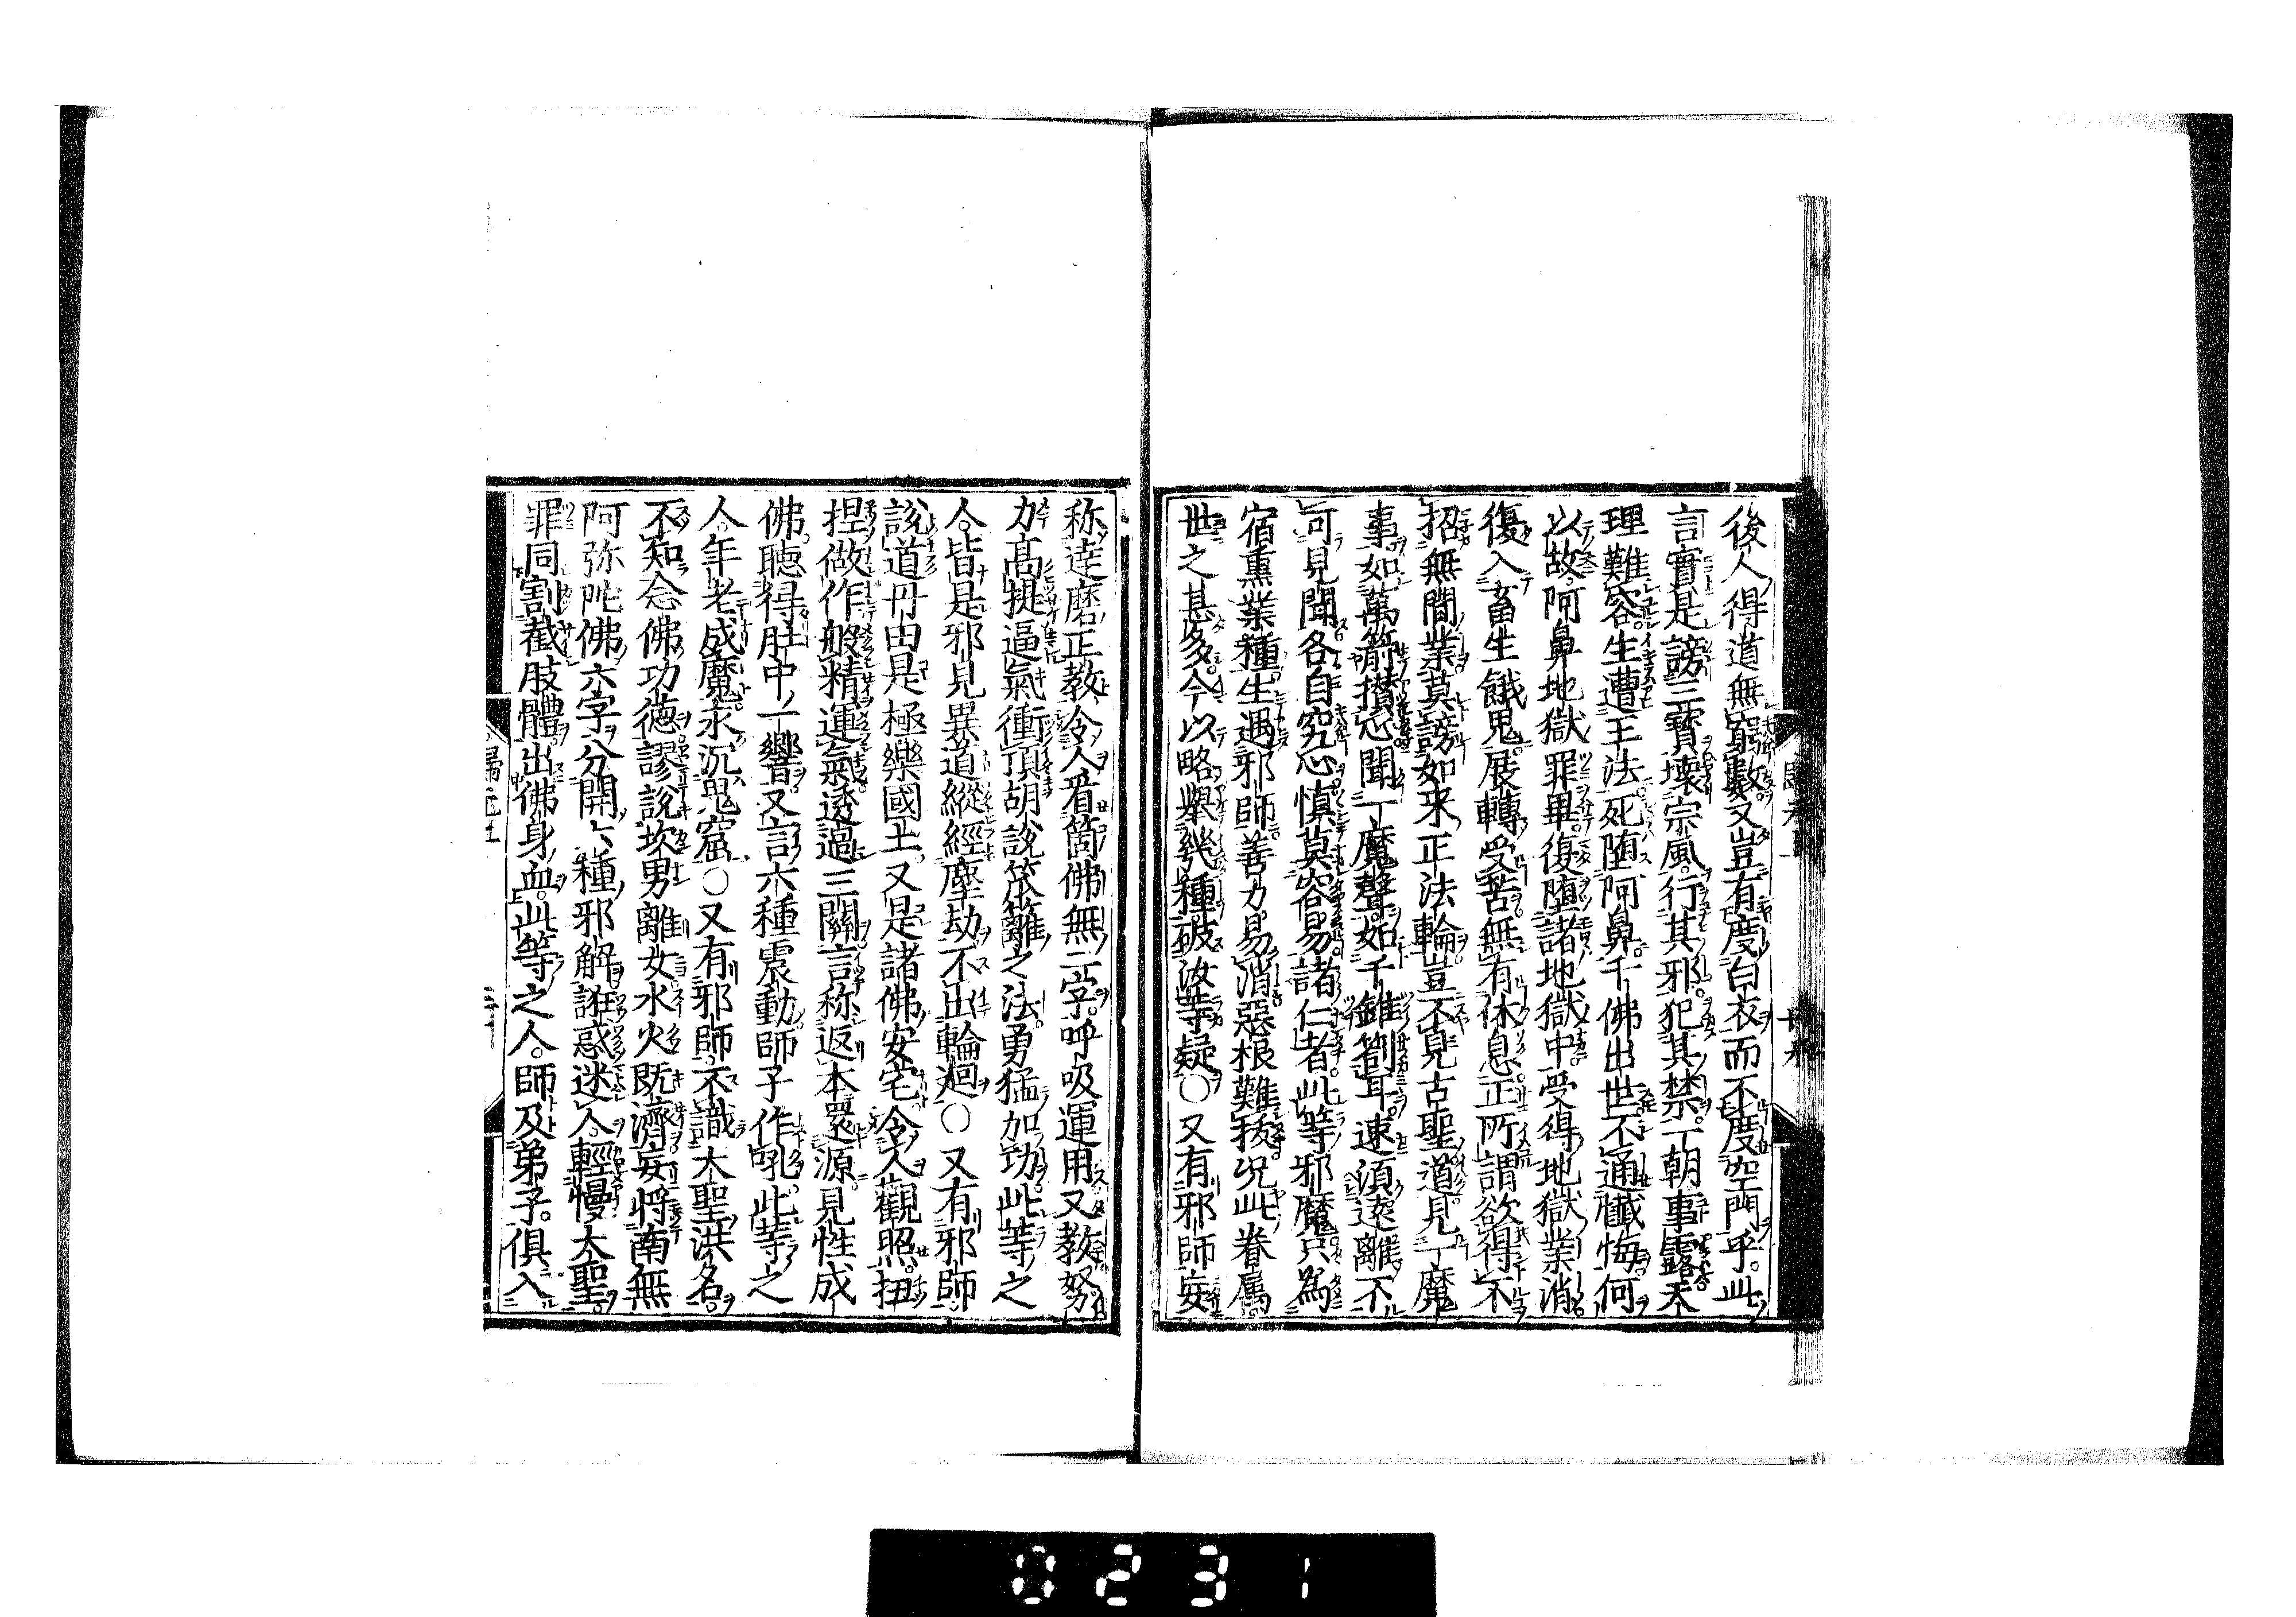 後人得道無窮數又豈有度白衣而不度空門乎此
言實是謗三寶壞宗風行其邪犯其禁一朝事露天
理難容生遭王法死墮阿鼻千佛出世不通懺悔何
以故阿鼻地獄罪畢復墮諸地獄中受得地獄業消
復入畜生餓鬼展轉受苦無有休息正所謂欲得不
招無間業莫謗如来正法輪豈不見古聖道見一魔
事如萬箭攅心聞一魔聲如千錐劄耳速須遠離不
可見聞各自究心慎莫容易諸仁者此等邪魔只為
宿熏業種生遇邪師善力易消惡根難拔况此眷属
世之甚多今以略舉幾種破汝等疑○又有邪師妄
称逹磨正教令人看箇佛無二字呼吸運用又教努
力高提逼氣衝頂胡說笊籬之法勇猛加功此等之
人皆是邪見異道縱經塵劫不出輪迴○又有邪師
說道丹田是極樂國土又是諸佛安宅令人觀照扭
捏做作般精運氣透過三關言称返本還源見性成
佛聽得肚中一響又言六種震動師子作吼此等之
人年老成魔永沉鬼窟○又有邪師不識大聖洪名
不知念佛功德謬說坎男離女水火既濟妄将南無
阿弥陀佛六字分開六種邪解誑惑迷人輕慢大聖
罪同割截肢體出佛身血此等之人師及弟子俱入
歸元
0231